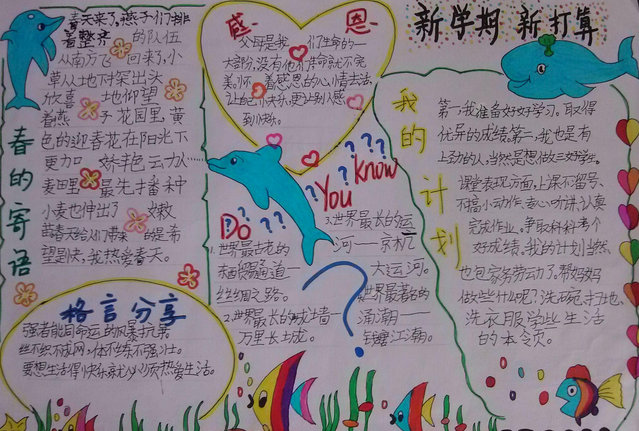 春的寄语
春天来了,燕子们排
着整齐的队伍
从南方飞回来了,小
草从地下探出头
放喜地仰望
着燕子花园里,黄
色的迎春花在阳光下
更加娇艳动人……
麦田里最先播种
小麦也伸出了嫩
春天给人们带来的是希
望是快,我热爱春天。
格言分享
强者能同命运的风暴抗
丝不织不成网,体不练不强壮。
要想生活得快乐就必须热爱生活。
感恩
父母是我们生命的一
大部分,没有他们生命就不完
美。怀着感恩的心情去活,
让自己快乐,更让别人感
到快乐。
Do You Know
???
1.世界最古老的
贸易通道一
丝绸之路。
2.世界最长的城墙
万里长城。
3.世界最长的运
河——京杭
大运河。
世界最著名的
涌潮——
钱塘江潮。
新学期 新打算
我的计划
第一,我准备好好学习。取得
优异的成绩,第二,我也是有
上劲的人,当然是想做三好学生。
课堂表现方面,上课不留号、
不搞小动作,专心听讲,认真
完成作业,争取科科考个
好成绩。我的计划当然
也包家务劳动了。帮妈妈
做些什么呢?洗碗,扫地,
洗衣服学些生活
的本领。